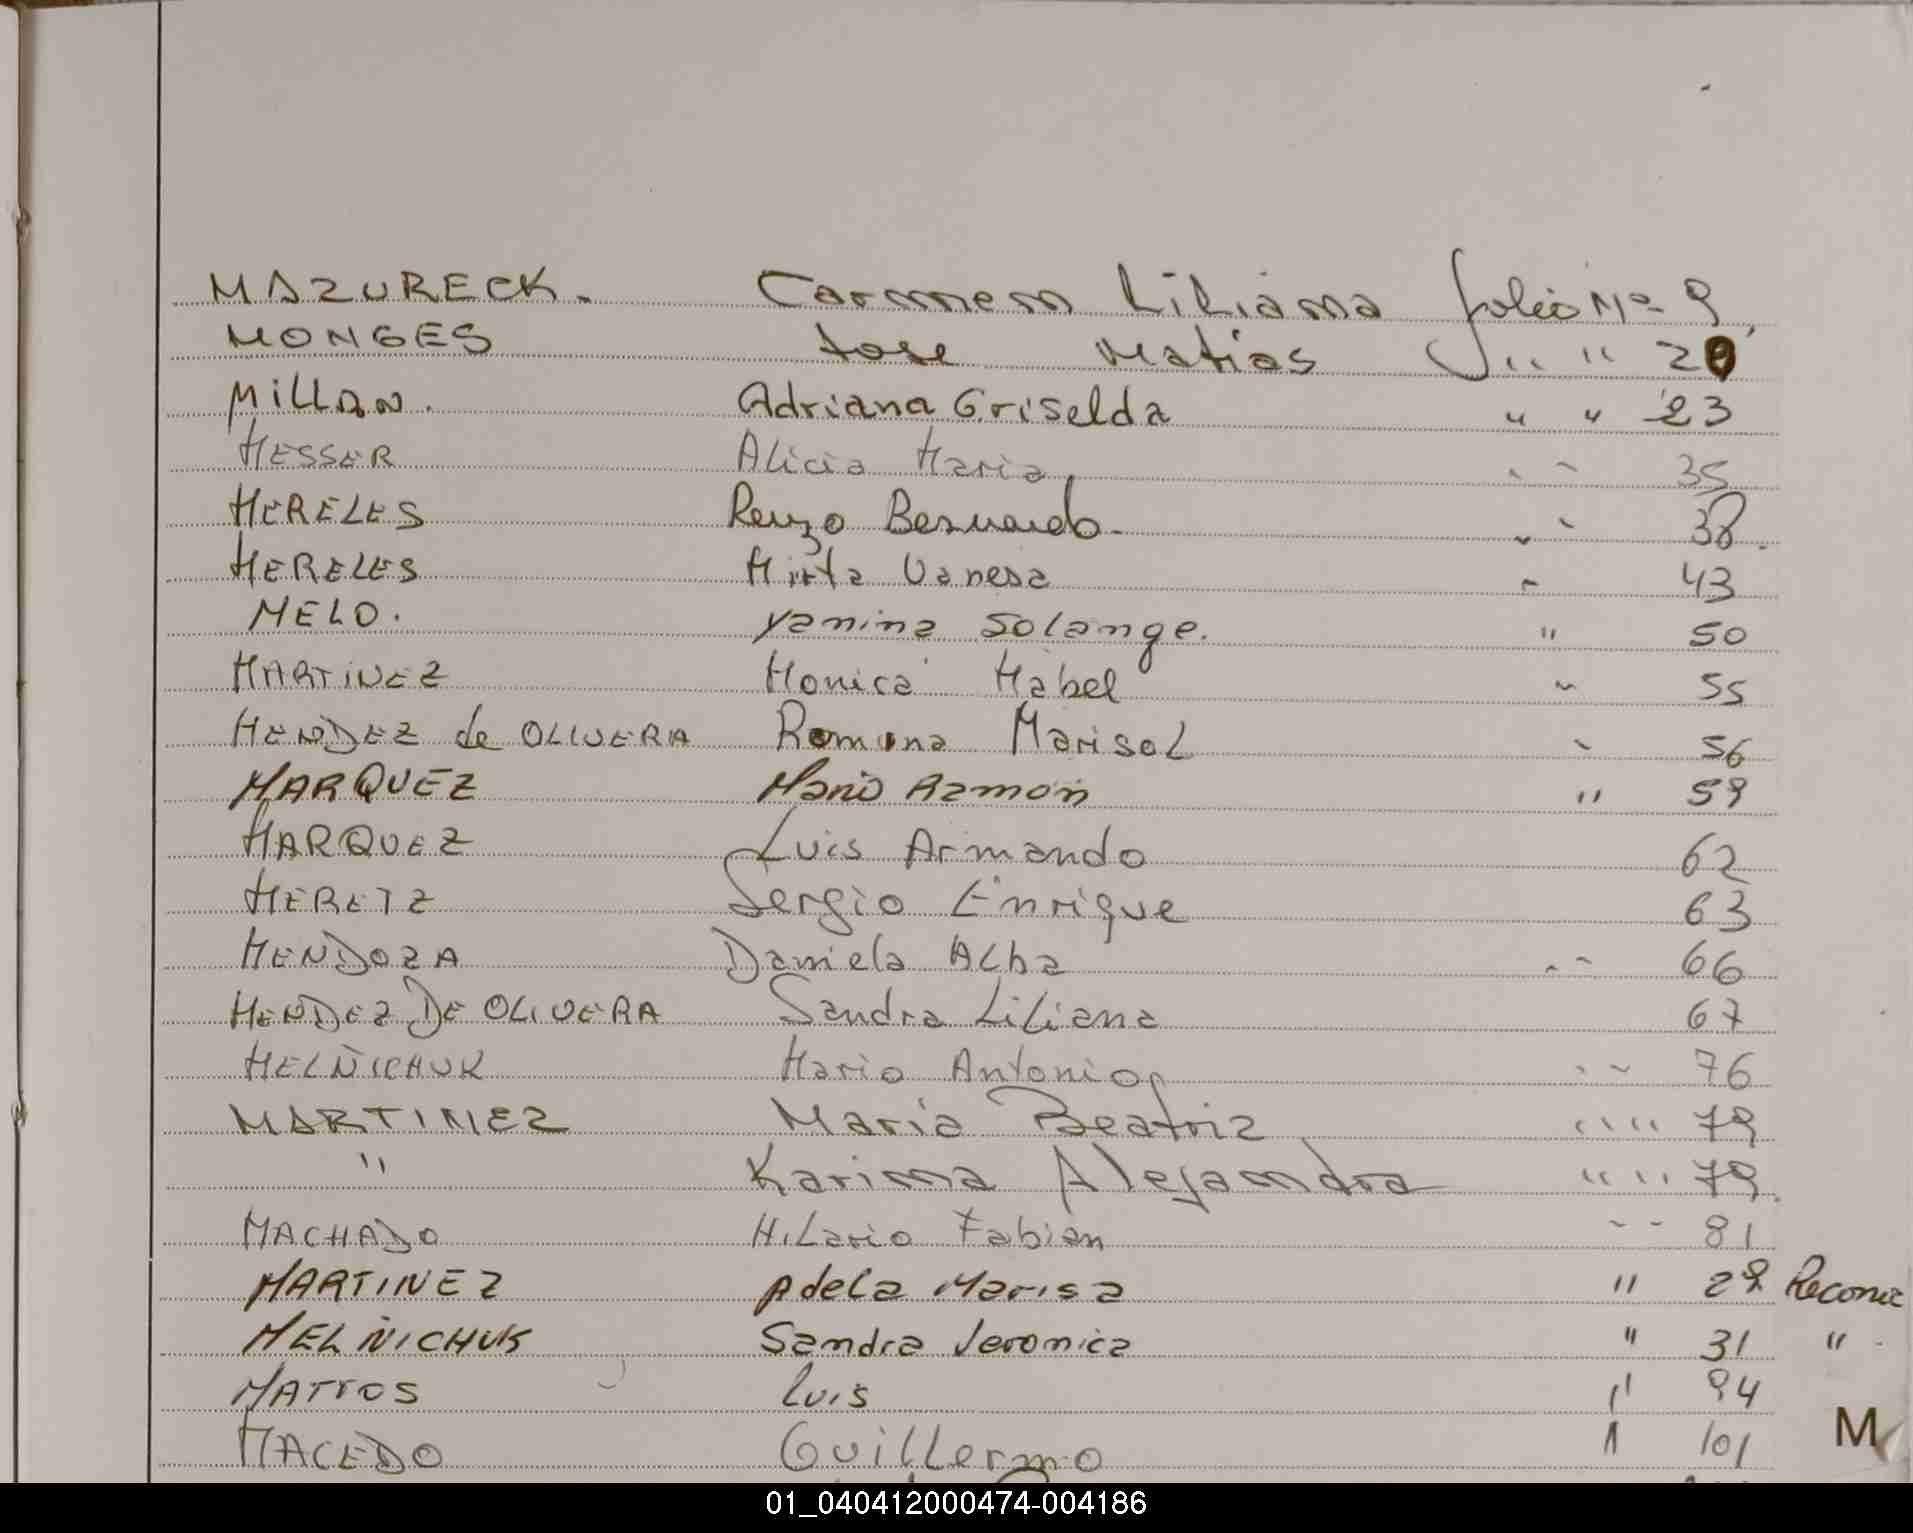 MAZURECK. Carmen Liliana folio Nº 9
MONGES Jose Matias " " 20
MILLAN. Adriana Griselda " " 23
MESSER Alicia Maria " " 35
MERELES Renzo Bernardo. " " 38.
MERELES Mirta Vanesa " 43
MELO. Yanina Solange. " 50
MARTINEZ Monica Mabel " 55
MENDEZ de OLIVERA Romina Marisol " 56
MARQUEZ Mario Ramón " 59
MARQUEZ Luis Armando 62
MERETZ Sergio Enrique 63
MENDOZA Daniela Alba " 66
MENDEZ DE OLIVERA Sandra Liliana 67
MELÑICHUK Mario Antonio " 76
MARTINEZ Maria Beatriz " " 79
" Karina Alejandra " " 79.
MACHADO Hilario Fabian " " 81
MARTINEZ Adela Marisa " 29 Reconoc
MELÑICHUK Sandra Veronica " 31 "
MATTOS Luis " 94
MACEDO Guillermo " 101
M
01_040412000474-004186